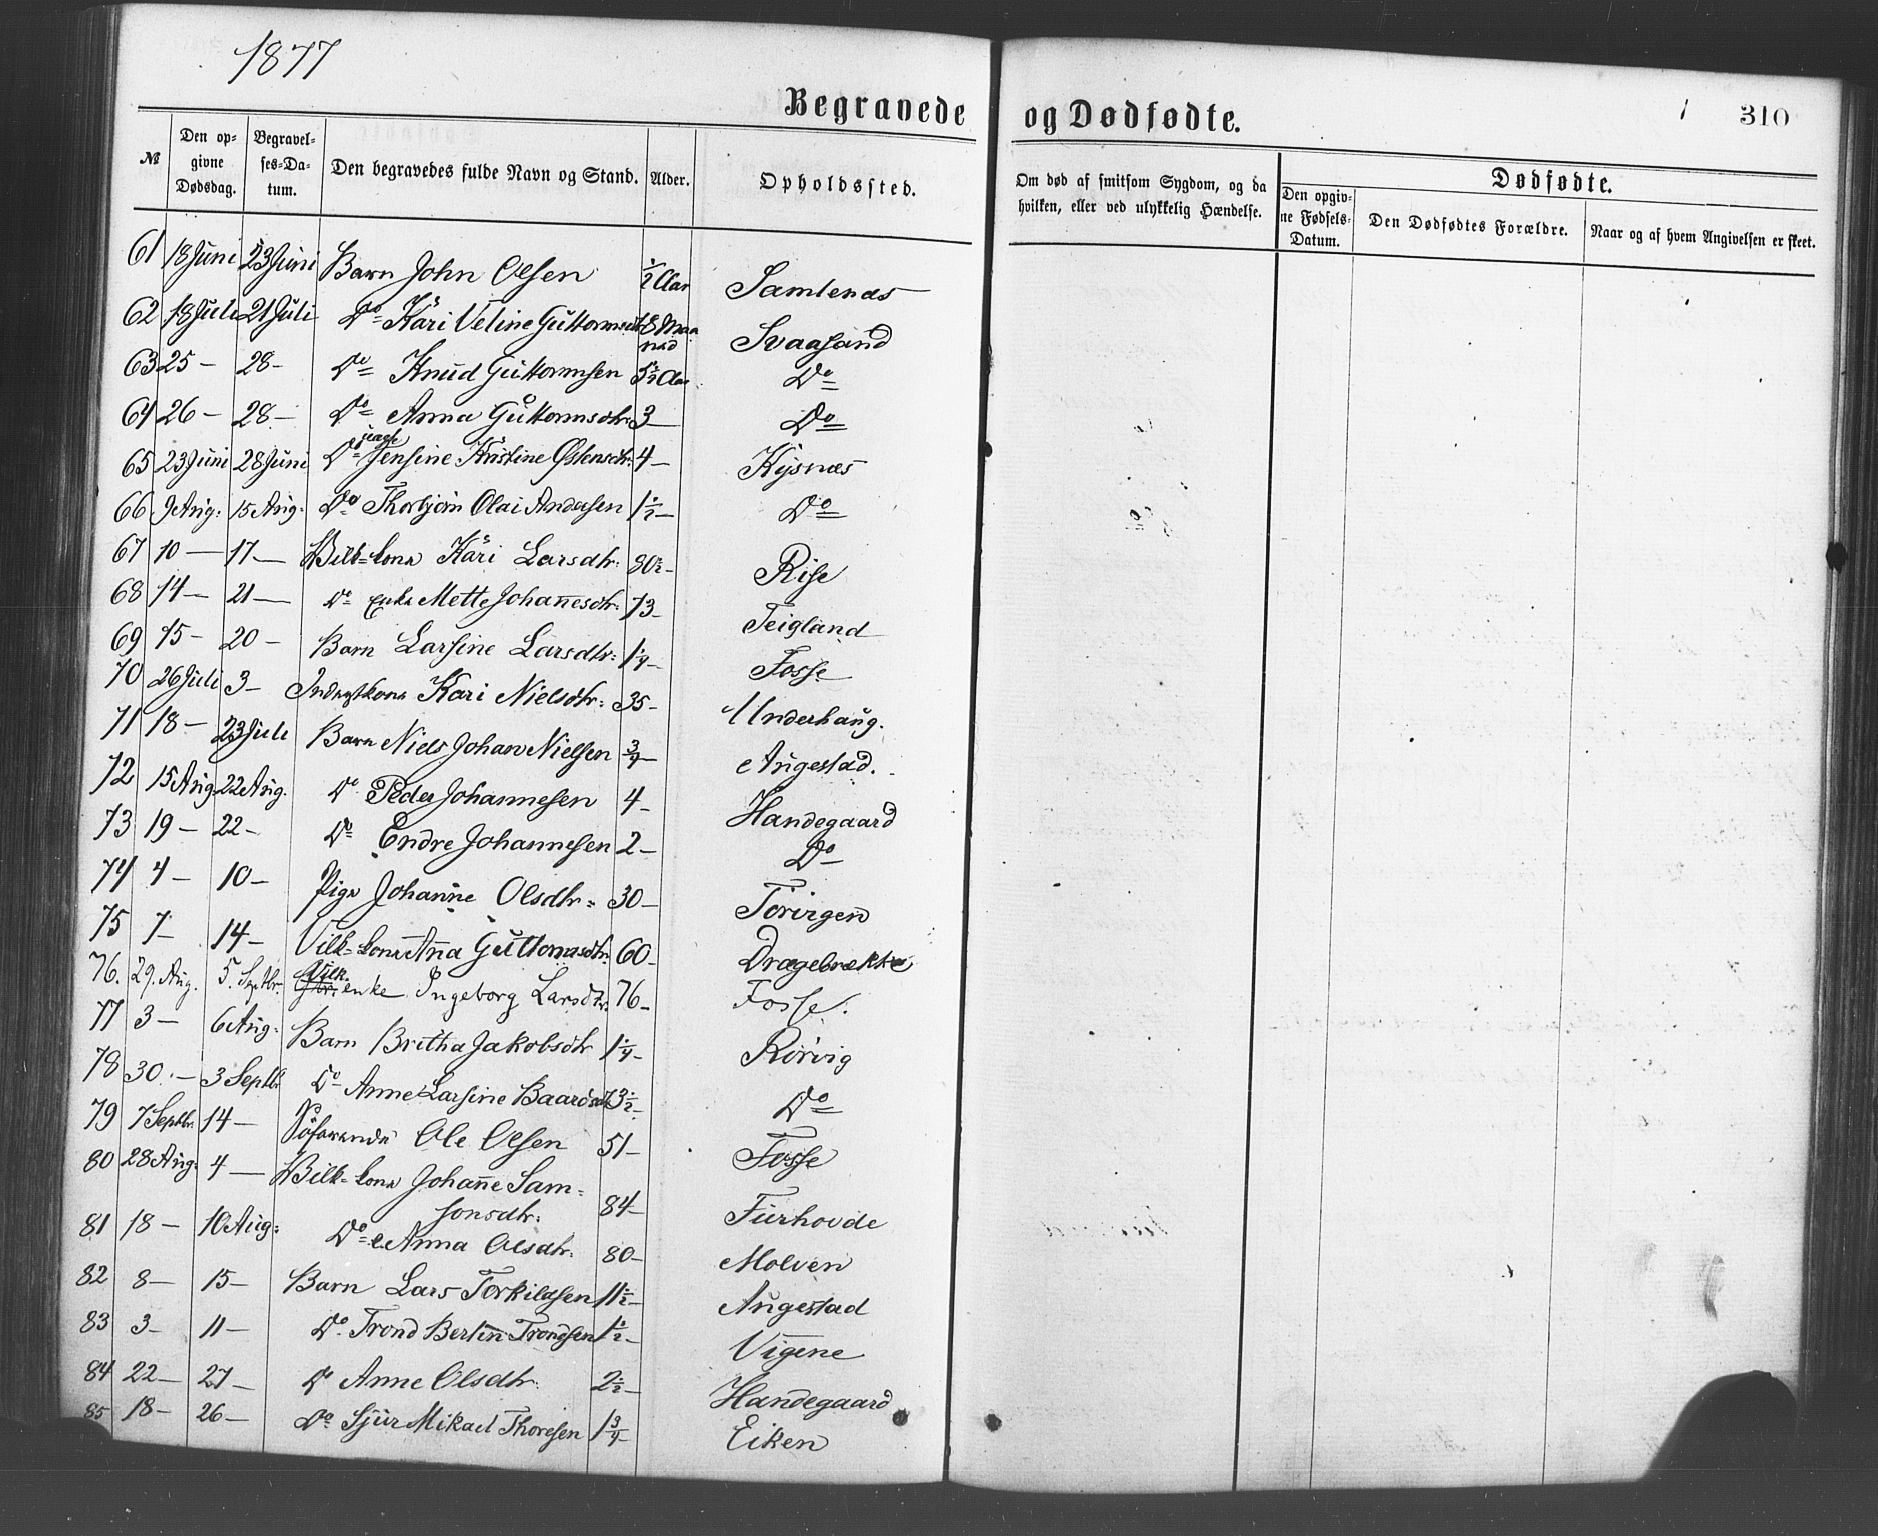 1877
Begravede og Dødfødte.
1 310
№ Den opgivne Dødsdag. Begravelses-Datum. Den begravedes fulde Navn og Stand. Alder. Opholdssted. Om død af smitsom Sygdom, og da hvilken, eller ved ulykkelig Hændelse. Dødfødte. Den opgivne Fødsels-Datum. Den Dødfødtes Forældre. Naar og af hvem Angivelsen er skeet.
61 18 Juni 23 Juni Barn John Olsen ½ Aar Samlenæs
62 18 Juli 21 Juli Do Kari Veline Guttormsdtr 8 Maanad Svaasand
63 25 - 28 - Do Knud Guttormsen 5½ Aar Do
64 26 - 28 - Do Anna Guttormsdtr: 3 - Do
65 23 Juni 28 Juni Do Jensine Kristine Ostensdtr: 4 - Kysnæs
66 9 Aug: 15 Aug: Do Thorbjørn Olai Andersen 1½ - Do
67 10 - 17 - Vilk=kona Kari Larsdtr: 80½ - Rise
68 14 - 21 - Do Enke Mette Johañesdtr: 73 - Teigland
69 15 - 20 - Barn Larsine Larsdtr: 1¼ - Fosse
70 26 Juli 3 - Inderstkona Kari Nielsdtr: 35 - Underhaug.
71 18 - 23 Juli Barn Niels Johan Nielsen ¾ - Augestad.
72 15 Aug 22 Aug. Do Peder Johannesen 4 - Handegaard
73 19 - 22 - Do Endre Johannesen 2 - Do
74 4 - 10 - Pige Johanne Olsdtr: 30 - Torvigen
75 7 - 14 - Vilk=kona Aña Guttormsdtr: 60 - Drægebrække
76. 29. Aug. 5. Septbr. Vilk. enke Ingeborg Larsdtr. 76 - Fosse.
77 3 - 6 Aug: Barn Britha Jakobsdtr 1¼ - Rørvig
78 30 - 3 Septbr Do Anne Larsine Baardsdtr 3½ - Do
79 7 Septbr: 14 - Søfarende Ole Olsen 51 - Fosse
80 28 Aug: 4 - Vilk=kona Johañe Sam=
sonsdtr: 84 - Furhovde
81 18 - 10 Aug: Do Anna Olsdtr: 80 - Molven
82 8 - 15 - Barn Lars Torkildsen 11½ - Augestad
83 3 - 11 - Do Trond Bertin Trondsen 1½ - Vigene
84 22 - 27 - Do Anne Olsdtr: 2½ - Handegaard
85 18 - 26 - Do Sjur Mikael Thoresen 1¾ - Eiken